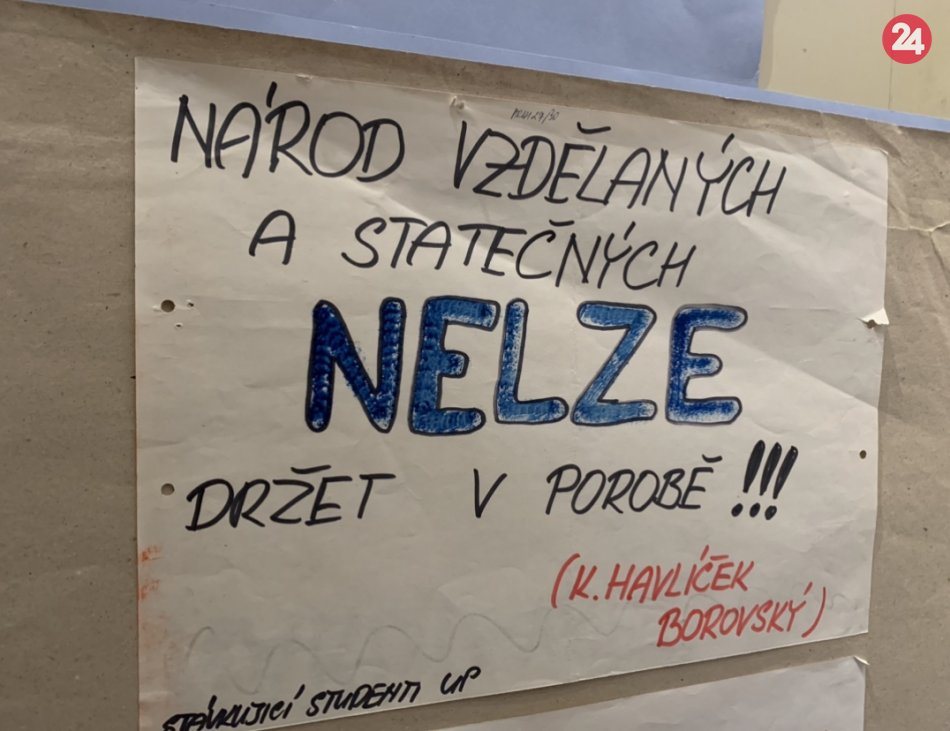 24
NÁROD VZDĚLANÝCH
A STATEČNÝCH
NELZE
DRŽET V POROBĚ !!!
(K. HAVLÍČEK
BOROVSKÝ)
STÁVKUJICÍ STUDENTI UP